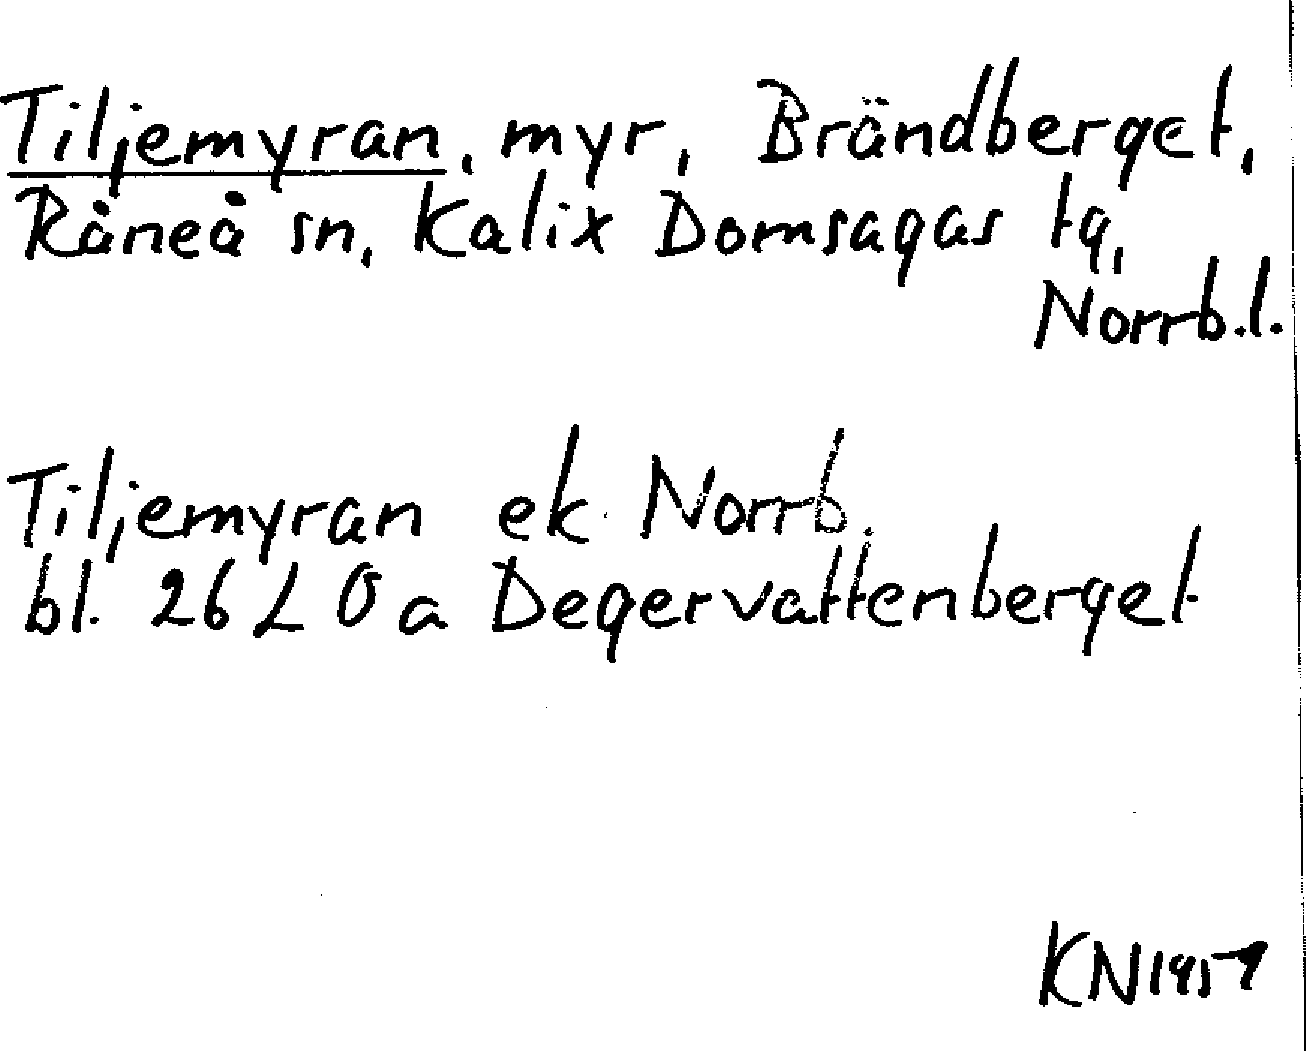 Tiljemyran, myr, Brändberget,
Råneå sn, Kalix Domsagas tg,
Norrb.l.
Tiljemyran ek Norrb.
bl. 26 L 0 a Degervattenberget
KN 1957